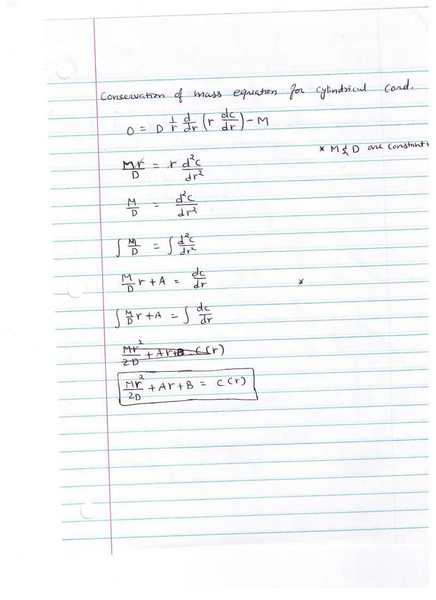 Conservation of mass equation for cylindrical cord.
0 = D 1/r d/dr (r dc/dr) - M
* M & D are constant
Mr/D = r d²c/dr²
M/D = d²c/dr²
∫ M/D = ∫ d²c/dr²
M/D r + A = dc/dr *
∫ M/D r + A = ∫ dc/dr
Mr²/2D + Ar+B = C(r)
Mr²/2D + Ar + B = C(r)